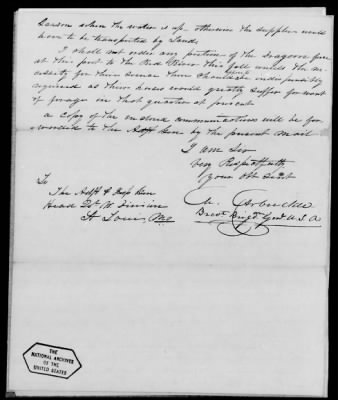 Season when the water is up – otherwise the supplies would
have to be transported by Land.
I shall not order any portion of the Dragoon force
at this post to the Red River this fall unless the ne-
cessity for their service there should be indispensably
required as their horses would greatly suffer for want
of forage in that quarter at present.
a Copy of the enclosed communications will be for-
warded to the Adjt Genl by the present mail
I am Sir
Very Respectfully
Your obt Servt
M. Arbuckle
Brevt Brigr Genl U.S.A
To
The Adjt & Insp Genl
Head Qrs W Division
St Louis, Mo
THE
NATIONAL ARCHIVES
OF THE
UNITED STATES